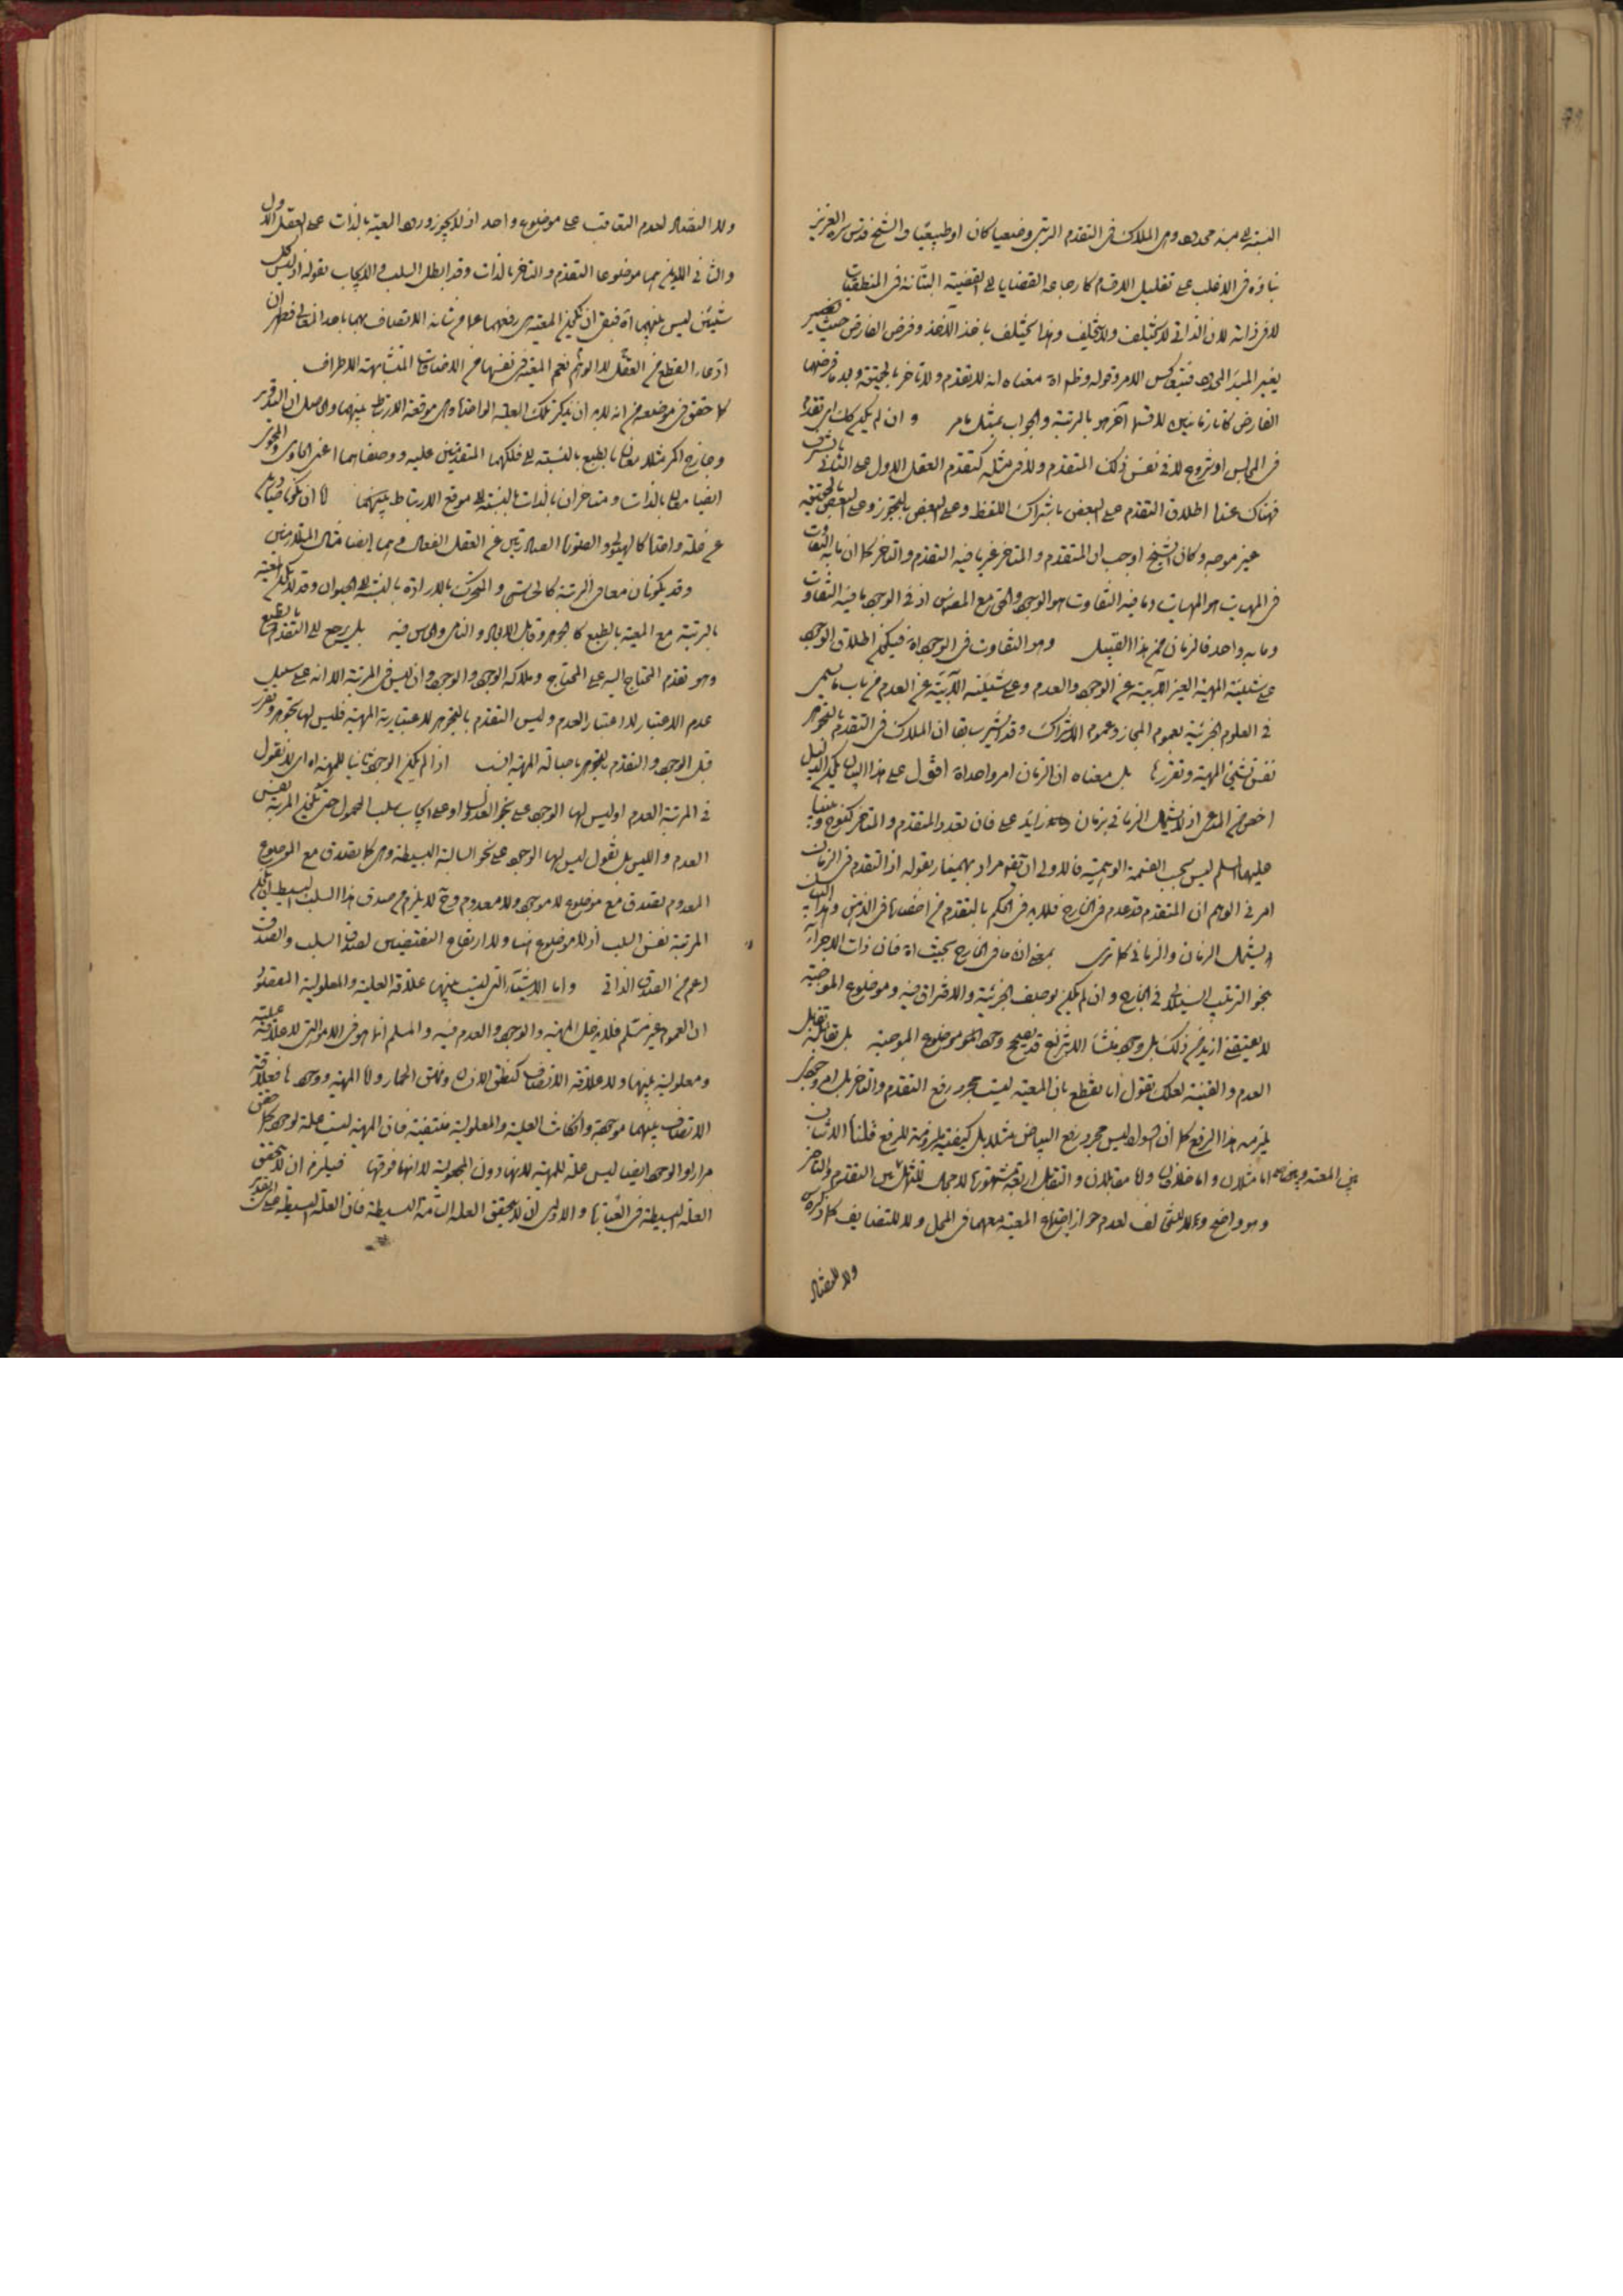 النسبة الى مبدء محدود وهى الملاك فى التقدم الرتبى وضعيا كان او طبيعيا والشيخ قدس سره العزيز
بناؤه فى الاغلب على تقليل الاقسام كارجاعه القضايا الى القضية البتاتة فى المنطقيات
لا فى ذاته لان الذاتى لا يختلف ولا يتخلف وهذا يختلف باخذ الآخذ وفرض الفارض حيث يصير
بغير المبدء المحدود فينعكس الامر وقوله وظ اه معناه انه لا تقدم ولا تاخر بالحقيقة وبعد ما فرضهما
الفارض كانا زمانيين لا قسما آخر هو بالرتبة والجواب بمثل ما مر و ان لم يكن كك اى تقدم
فى المجالس او شروع لا فى نفس ذلك المتقدم ولا فى مثله كتقدم العقل الاول على الثانى بالشرف
فهناك عندنا اطلاق التقدم على البعض باشتراك اللفظ وعلى البعض بالتجوز وعلى البعض بالحقيقة
غير موجه وكان الشيخ اوجب ان المتقدم والمتاخر غير ما فيه التقدم والتاخر كما ان ما به التفاوت
فى المهيات هو المهيات وما فيه التفاوت هو الوجود والحق مع المص اذ فى الوجود ما فيه التفاوت
وما به واحد فالزمان من هذا القبيل وهو التفاوت فى الوجود اه فيمكن اطلاق الوجود
على شيئية المهية الغير الآبية عن الوجود والعدم وعلى شيئيته الآبية عن العدم من باب ما يسمى
فى العلوم الجزئية بعموم المجاز وعموم الاشتراك وقد اشير سابقا ان الملاك فى التقدم بالتجوهر
نفس شيئية المهية وتقررها بل معناه ان الزمان امر واحد اه اقول على هذا البيان يكون الدليل
اخص من المدعى اذ لا يشمل الزمانى بزمان زايد على فان تعدد المتقدم والمتاخر كنوح ونبينا
عليهما السلم ليس بحسب القسمة الوهمية فالاولى ان يقال مراد بهمنيار بقوله اذ التقدم فى الزمان
امر فى الوهم ان المتقدم قد عدم فى الخارج فلابد فى الحكم بالتقدم من احضارها فى الذهن وهذا البيان
يشمل الزمان والزمانى كما ترى بمعنى ان ما فى الخارج بحيث اه فان ذات الاجزاء
بنحو الترتيب السيلانى فى الخارج و ان لم يكن بوصف الجزئية والافتراق فيه وموضوع الموجبة
لا يقتضى ازيد من ذلك بل وجود منشأ الانتزاع قد يصحح وجود موضوع الموجبة بل تقابله تقابل
العدم والقنية لعلك تقول انا نقطع بان المعية ليست مجرد رفع التقدم والتاخر بل امر وجودى
يلزمه هذا الرفع كما ان السواد ليس مجرد رفع البياض مثلا بل كيفية ملزومة للرفع قلنا الاثنان
اما مثلان و اما خلافان و اما مقابلان و التقابل اربعة مشهورة لا مجال للتماثل بين التقدم والتاخر
بين المعية
وهو واضح ولا للتخالف لعدم جواز اجتماع المعية معهما فى المحل ولا للتضايف كما ذكره
ولا للتضاد
ولا التضاد لعدم التعاقب على موضوع واحد اذ لا يجوز ورود المعية بالذات على العقل الاول
والثانى اللذين هما موضوعا التقدم والتاخر بالذات وقد ابطل السلب والايجاب بقوله اذ ليس كل
شيئين ليس بينهما اه فبقى ان تكون المعية هى رفعهما عما من شانه الاتصاف بهما باحد المعانى فظهر ان
ادعاء القطع من العقل لا الوهم نعم المعية فى نفسها من الاضافات المتشابهة الاطراف
كما حقق فى موضعه من انه لابد ان يذكر تلك العلة الواحدة وهى موقعة الارتباط بينهما
وخارج المركز مثلا معان بالطبع بالنسبة الى فلكهما المتقدمين عليه ووصفاهما اعنى الحاوى والمحوى
ايضا معان بالذات و متاخران بالذات بالنسبة الى موقع الارتباط بينهما اما ان يكونا صادرين
عن علة واحدة كالهيولى والصورة الصادرتين عن العقل الفعال وهما ايضا مثال المتلازمين
وقد يكونان معا فى الرتبة كالحساس و المتحرك بالارادة بالنسبة الى الحيوان وقد لا يكون المعية
بالرتبة مع المعية بالطبع كالجوهر وقابل الابعاد و النامى والحساس فيه بل يرجع الى التقدم بالطبع
وهو تقدم المحتاج اليه على المحتاج وملاكه الوجود والوجود وان ليس فى المرتبة الا انه على سبيل
عدم الاعتبار لا اعتبار العدم وليس التقدم بالتجوهر لاعتبارية المهية فليس لها تجوهر وتقرر
قبل الوجود والتقدم بالتجوهر باصالة المهية انسب اذا لم يكن الوجود ثابتا للمهية اه اى لا نقول
فى المرتبة العدم او ليس لها الوجود على نحو العدول او على ايجاب سلب المحمول حتى تكون المرتبة نفس
العدم و الليس بل نقول ليس لها الوجود على نحو السالبة البسيطة وهى كما تصدق مع الموضوع
المعدوم تصدق مع موضوع لا موجود ولا معدوم وح لا يلزم من صدق هذا السلب البسيط ان تكون
المرتبة نفس السلب اذ لا موضوع هنا ولا ارتفاع النقيضين لصدق السلب والصدق
اعم من الصدق الذاتى و اما الاشياء التى ليست بينهما علاقة العلية والمعلولية المقصود
ان العموم غير مسلم فلا يدخل المهية والوجود والعدم فيه و المسلم انما هو فى الامور التى لا علاقة علية
ومعلولية بينهما ولا علاقة الاتصاف كنطق الانسان ونهق الحمار و اما المهية ووجودها فعلاقة
الاتصاف بينهما موجودة وانكانت العلية والمعلولية منتفية فان المهية ليست علة لوجودها كما حقق
مرارا و الوجود ايضا ليس علة للمهية لانها دون المجعولية لا انها فوقها فيلزم ان لا يتحقق
العلة البسيطة فى العقليات والاولى ان لا يتحقق العلة التامة البسيطة فان العلة البسيطة